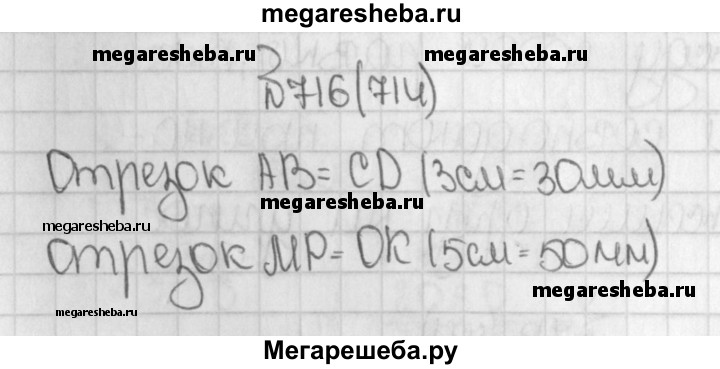 megaresheba.ru
megaresheba.ru megaresheba.ru
№716(714)
Отрезок AB = CD (3см = 30мм)
megaresheba.ru
megaresheba.ru
Отрезок MP = OK (5см = 50мм)
megaresheba.ru
megaresheba.ru
Мегарешеба.ру